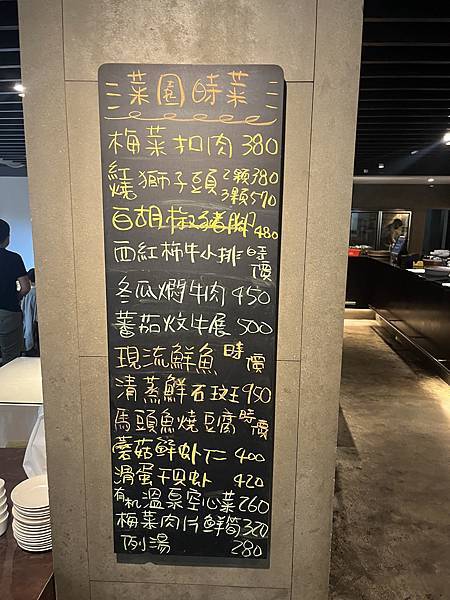 菜園時菜
梅菜扣肉 380
紅燒獅子頭 2顆380 3顆570
白胡椒豬腳 480
西紅柿牛小排 時價
冬瓜燜牛肉 450
蕃茄炆牛展 500
現流鮮魚 時價
清蒸鮮石斑 950
馬頭魚燒豆腐 時價
蘑菇鮮虾仁 400
滑蛋干贝虾 420
有机溫泉空心菜 260
梅菜肉片鮮筍 320
例湯 280